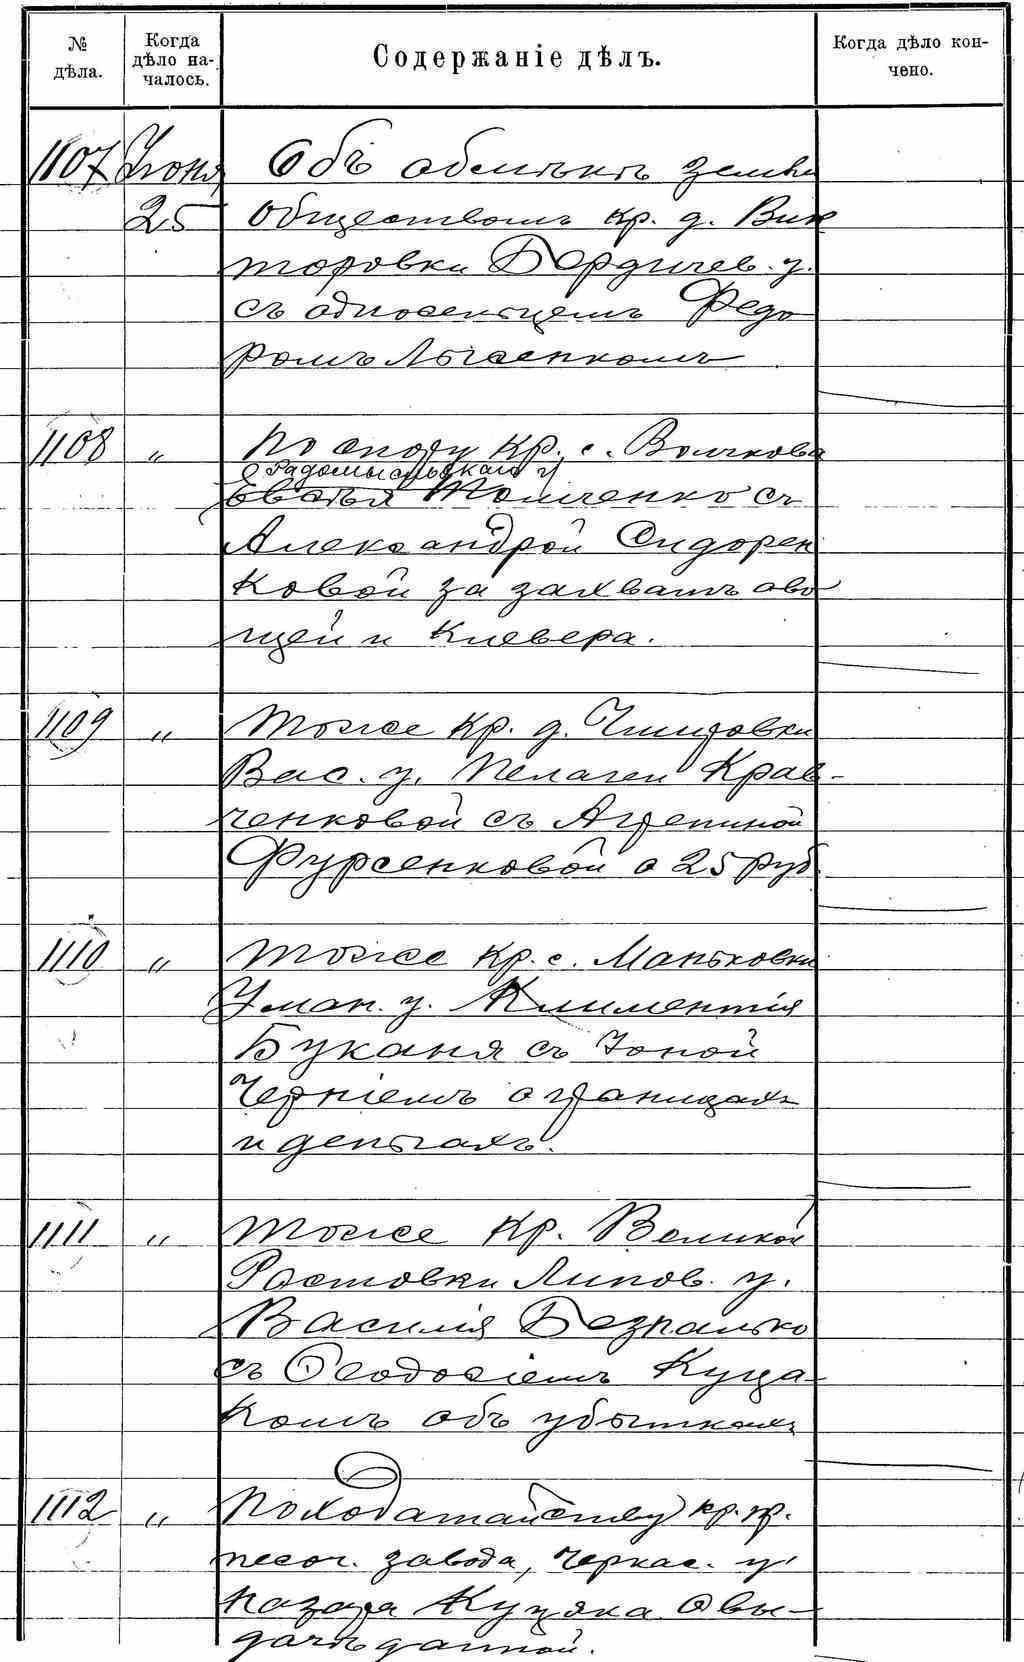 № дѣла.
Когда дѣло на-чалось.
Содержаніе дѣлъ.
Когда дѣло кон-чено.
1107 Июня Объ обмѣнѣ земли
25 обществомъ кр. д. Вик
торовки Бердичев. у.
съ односельцемъ Федо
ромъ Лысенкомъ
1108 „ По спору кр. с. Волчкова
Радомысльскаго у
Евстья Толченко съ
Александрой Сидорен
ковой за захватъ ово
щей и клевера.
1109 „ Тоже кр. д. Чмыровки
Вас. у. Пелагеи Крав-
ченковой съ Агрепиной
Фурсенковой о 25 руб.
1110 „ Тоже кр. с. Маньковки
Уман. у. Климентія
Буканя съ Іоной
Чернiемъ о границахъ
и деньгахъ.
1111 „ Тоже кр. Великой
Ростовки Липов. у.
Василія Безпалько
съ Ѳеодосіемъ Куца-
комъ объ убыткахъ
1112 „ По ходатайству кр. гр.
песоч. завода, Черкас. у
Назара Куцяка о вы-
дачѣ данной.